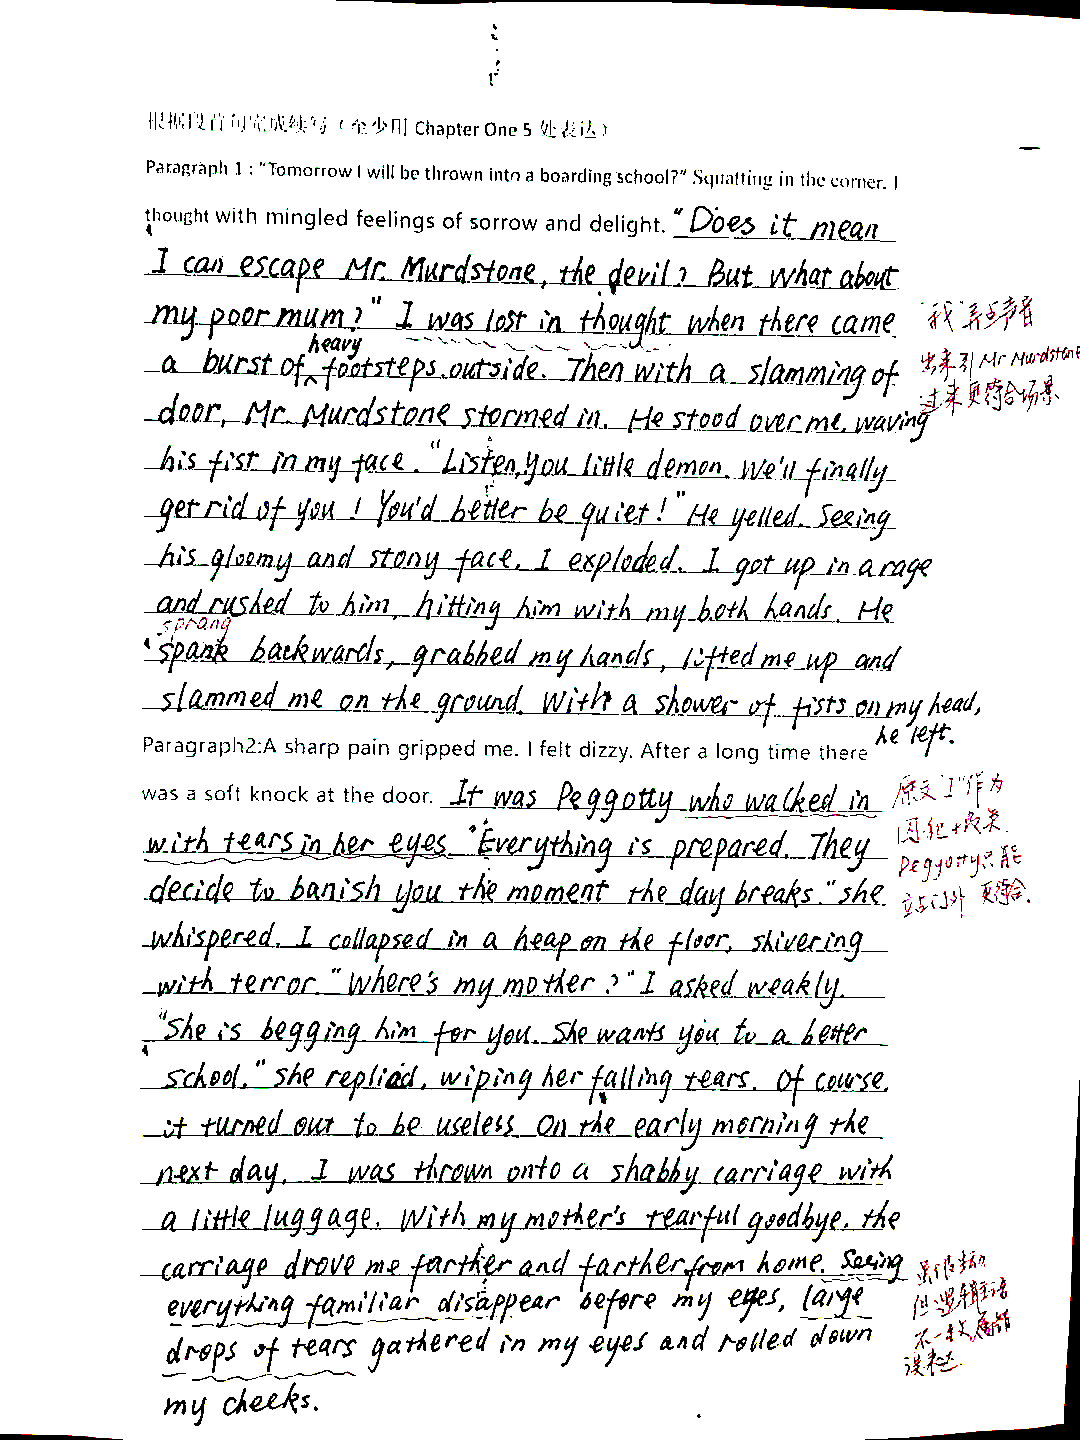 根据段首句完成续写（至少用 Chapter One 5 处表达）
Paragraph 1 : "Tomorrow I will be thrown into a boarding school?" Squatting in the corner. I
thought with mingled feelings of sorrow and delight. "Does it mean
I can escape Mr. Murdstone, the devil? But what about
my poor mum?" I was lost in thought when there came
a burst of heavy footsteps outside. Then with a slamming of
door, Mr. Murdstone stormed in. He stood over me, waving
his fist in my face. "Listen, you little demon. We'll finally
get rid of you! You'd better be quiet!" He yelled. Seeing
his gloomy and stony face, I exploded. I got up in a rage
and rushed to him, hitting him with my both hands. He
sprang
spank backwards, grabbed my hands, lifted me up and
slammed me on the ground. With a shower of fists on my head,
he left.
Paragraph2:A sharp pain gripped me. I felt dizzy. After a long time there
was a soft knock at the door. It was Peggotty who walked in
with tears in her eyes. "Everything is prepared. They
decide to banish you the moment the day breaks." she
whispered. I collapsed in a heap on the floor, shivering
with terror. "Where's my mother?" I asked weakly.
"She is begging him for you. She wants you to a better
school." she replied, wiping her falling tears. Of course,
it turned out to be useless. On the early morning the
next day, I was thrown onto a shabby carriage with
a little luggage. With my mother's tearful goodbye, the
carriage drove me farther and farther from home. Seeing
everything familiar disappear before my eyes, large
drops of tears gathered in my eyes and rolled down
my cheeks.
"我"弄点声音
出来引Mr Murdstone
过来更符合场景
原文"I"作为
囚犯+改关
Peggotty只能
立与门外 更符合.